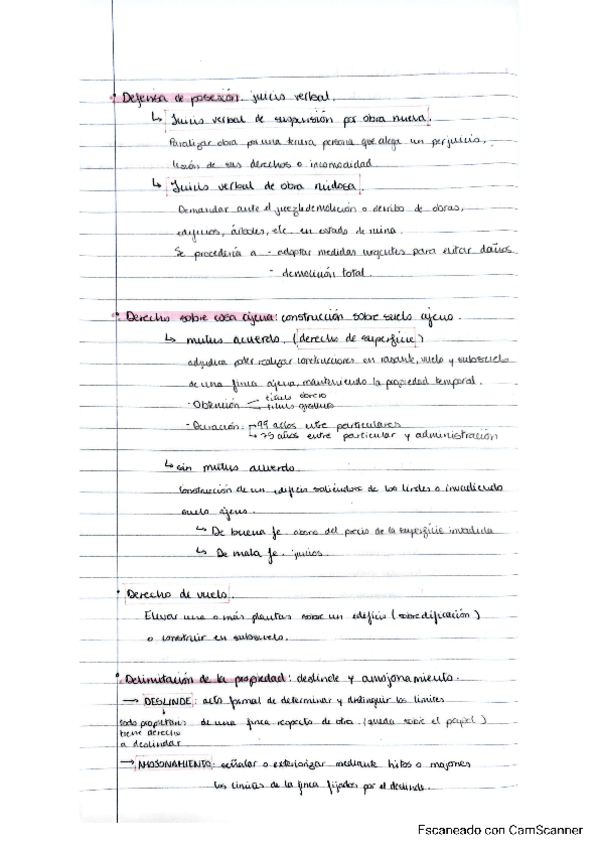 • Defensa de posesión. juicio verbal.
↳ Juicio verbal de suspensión por obra nueva.
Paralizar obra por una tercera persona que alega un perjuicio,
lesión de sus derechos o incomodidad.
↳ Juicio verbal de obra ruidosa.
Demandar ante el juez la demolición o derribo de obras,
edificios, árboles, etc. en estado de ruina.
Se procedería a - adoptar medidas urgentes para evitar daños.
- demolición total.
• Derecho sobre cosa ajena: construcción sobre suelo ajeno.
↳ mutuo acuerdo. (derecho de superficie)
poder realizar construcciones en rasante, vuelo y subsuelo
de una finca ajena, manteniendo la propiedad temporal.
- Obtención título
título gratuito
- Duración: → 99 años entre particulares
↳ 75 años entre particular y administración
↳ sin mutuo acuerdo.
Construcción de un edificio saliéndose de los lindes o invadiendo
suelo ajeno.
↳ De buena fe. abono del precio de la superficie invadida
↳ De mala fe. juicios.
• Derecho de vuelo.
Elevar una o más plantas sobre un edificio (sobreedificación)
o construir en subsuelo.
• Delimitación de la propiedad: deslinde y amojonamiento.
→ DESLINDE: acto formal de determinar y distinguir los límites
de una finca respecto de otra. (queda sobre el papel)
todo propietario
tiene derecho
a deslindar
→ AMOJONAMIENTO: señalar o exteriorizar mediante hitos o mojones
los límites de la finca fijados por el deslinde.
Escaneado con CamScanner